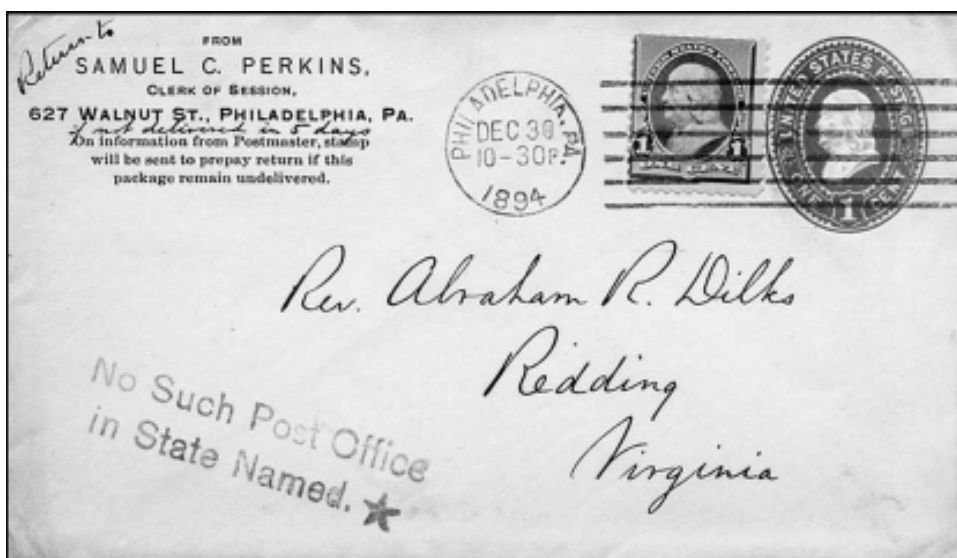 Return to
FROM
SAMUEL C. PERKINS,
CLERK OF SESSION,
627 WALNUT ST., PHILADELPHIA, PA.
if not delivered in 5 days
On information from Postmaster, stamp
will be sent to prepay return if this
package remain undelivered.
PHILADELPHIA, PA.
DEC 30
10-30P.
1894
1 1
UNITED STATES POSTAGE
ONE CENT
1
Rev. Abraham R. Dilks
Redding
Virginia
No Such Post Office
in State Named.